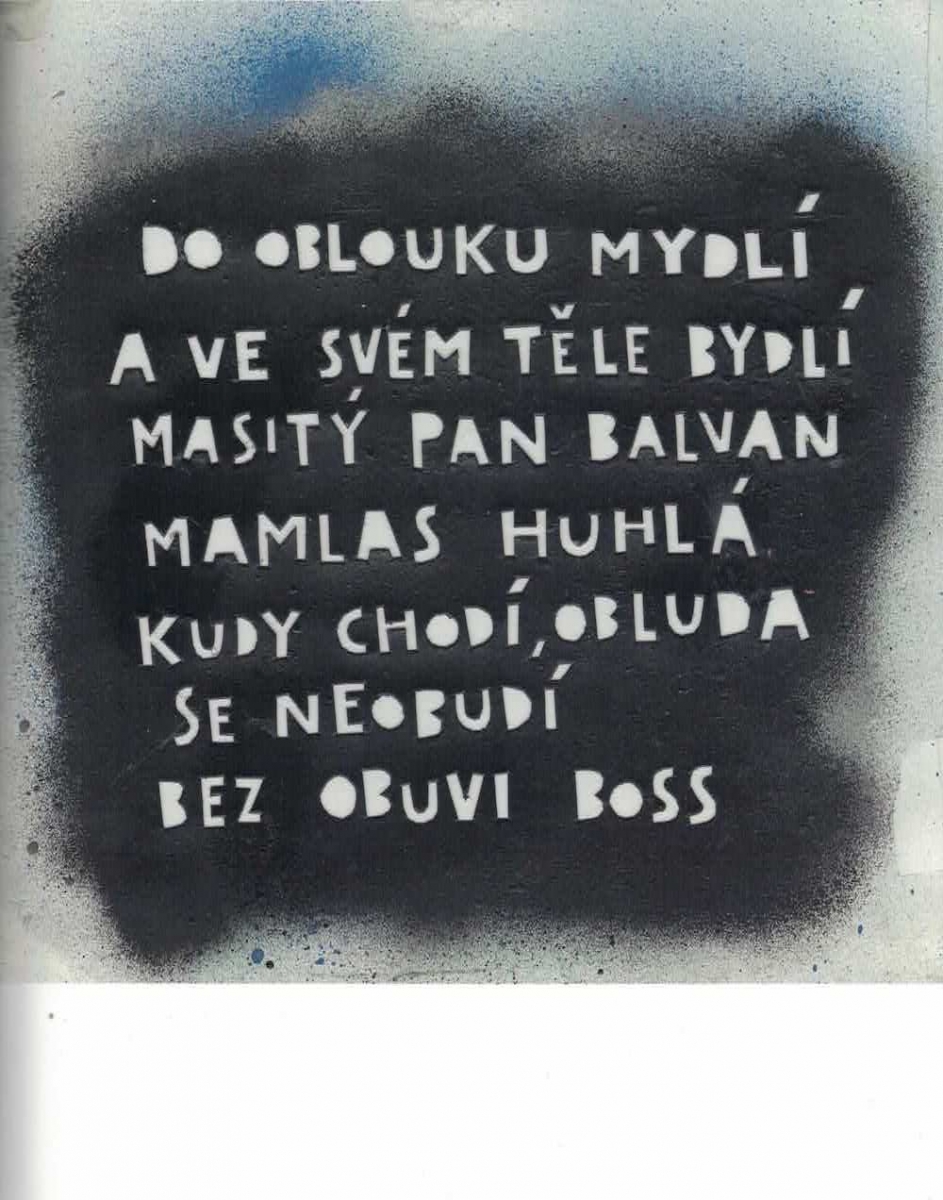 DO OBLOUKU MYDLÍ
A VE SVÉM TĚLE BYDLÍ
MASITÝ PAN BALVAN
MAMLAS HUHLÁ
KUDY CHODÍ, OBLUDA
SE NEOBUDÍ
BEZ OBUVI BOSS